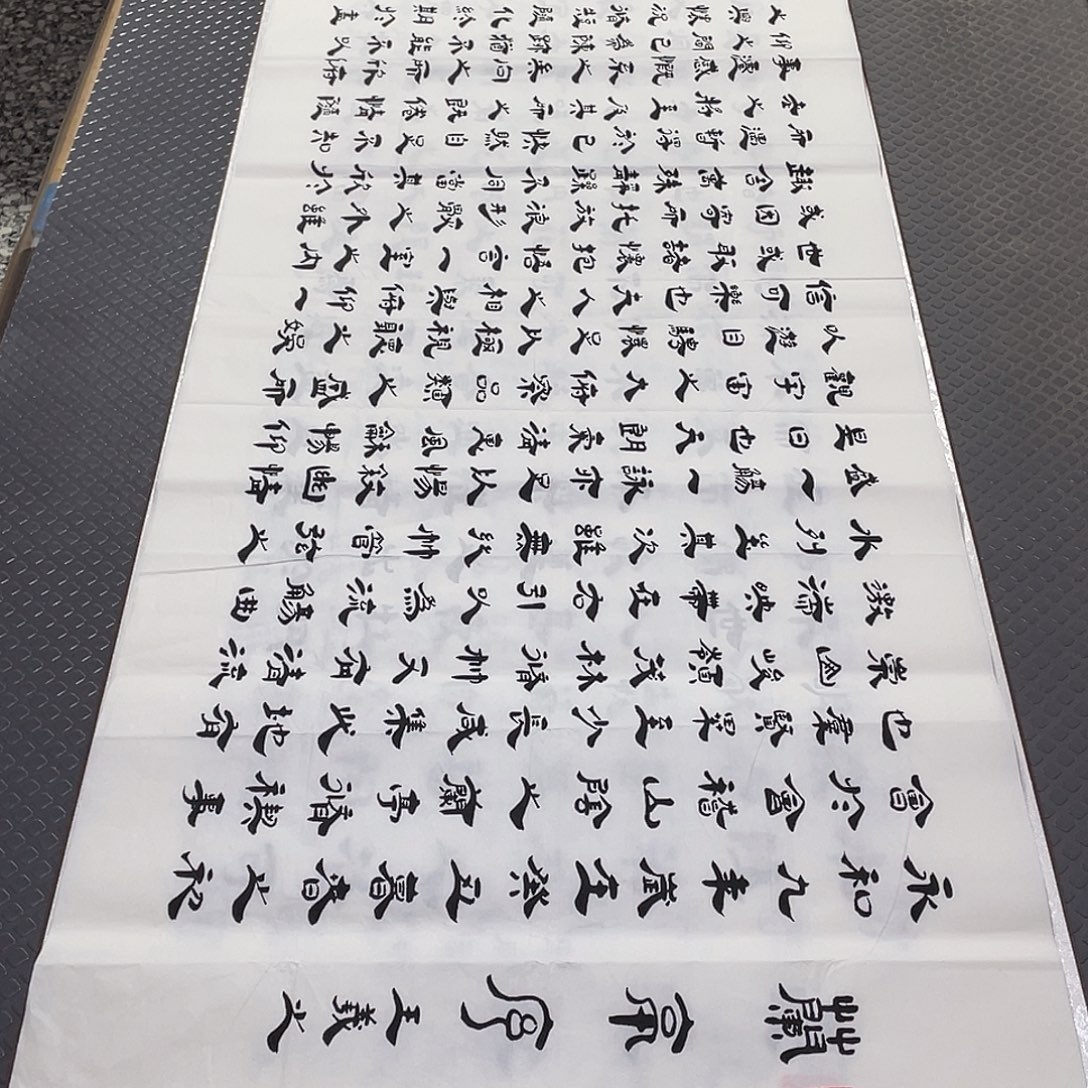 蘭亭序 王羲之
永和九年歲在癸丑暮春之初
會於會稽山陰之蘭亭脩禊事
也羣賢畢至少長咸集此地有
崇山峻嶺茂林脩竹又有清流
激湍映帶左右引以為流觴曲
水列坐其次雖無絲竹管弦之
盛一觴一詠亦足以暢敘幽情
是日也天朗氣清惠風龢暢仰
觀宇宙之大俯察品類之盛所
以遊目騁懷足以極視聽之娛
信可樂也夫人之相與俯仰一
世或取諸懷抱悟言一室之內
或因寄所託放浪形骸之外雖
趣舍萬殊靜躁不同當其欣於
所遇暫得於己快然自足不知
老之將至及其所之既倦情隨
事遷感慨係之矣向之所欣俛
仰之間已為陳跡猶不能不以
之興懷況脩短隨化終期於盡